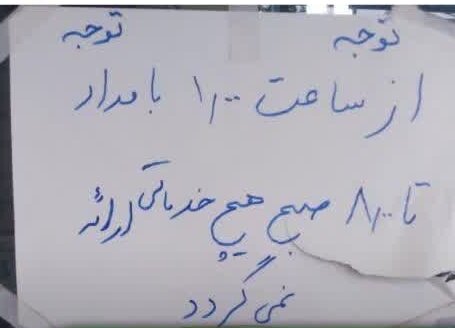 توجه توجه
از ساعت ۱/۰۰ بامداد
تا ۸/۰۰ صبح هیچ خدماتی ارائه
نمی گردد